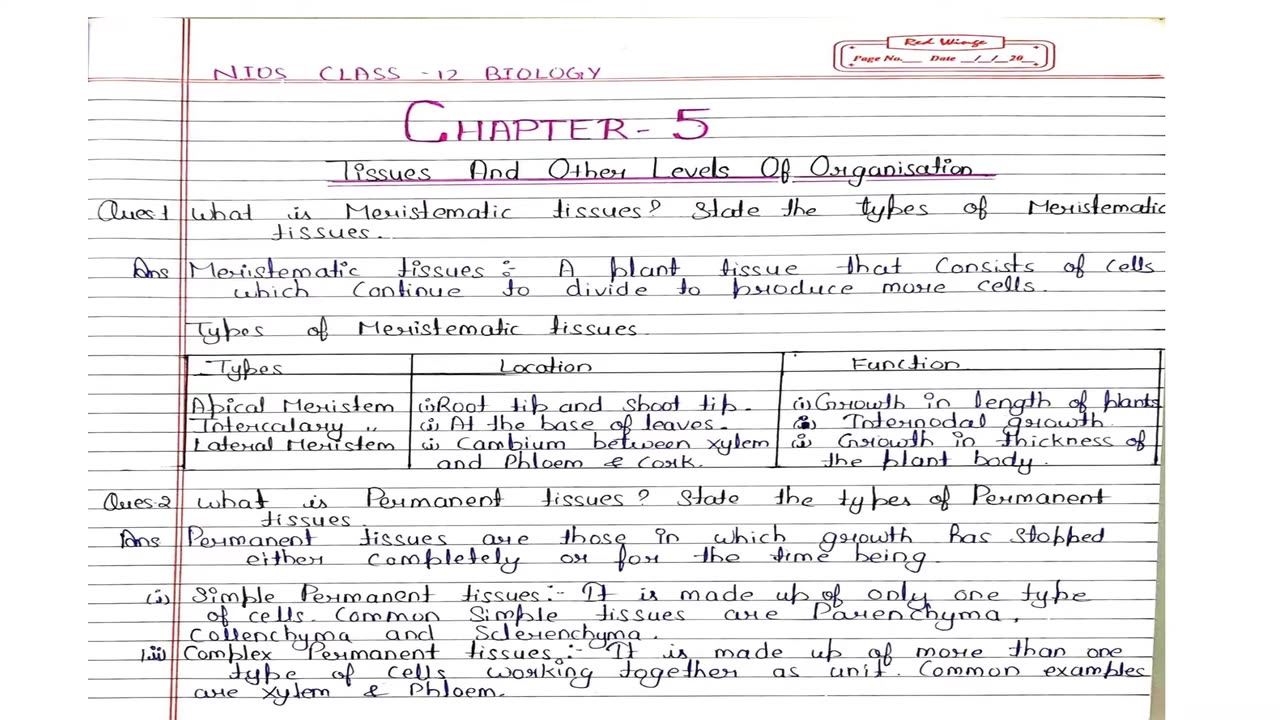 Red Wings
Page No. Date / / 20
NIOS CLASS -12 BIOLOGY
CHAPTER - 5
Tissues And Other Levels Of Organisation
Ques-1 What is Meristematic tissues? State the types of Meristematic
tissues.
Ans Meristematic tissues :- A plant tissue that consists of cells
which continue to divide to produce more cells.
Types of Meristematic tissues
Types Location Function
Apical Meristem (i) Root tip and Shoot tip. (i) Growth in length of plants
Intercalary „ (i) At the base of leaves. Internodal growth
Lateral Meristem (i) Cambium between xylem (i) Growth in thickness of
and Phloem & Cork. the plant body.
Ques-2 What is Permanent tissues? State the types of Permanent
tissues
Ans Permanent tissues are those in which growth has stopped
either completely or for the time being.
(i) Simple Permanent tissues:- It is made up of only one type
of cells. Common Simple tissues are Parenchyma,
Collenchyma and Sclerenchyma.
(ii) Complex Permanent tissues:- It is made up of more than one
type of cells working together as unit. Common examples
are xylem & Phloem.